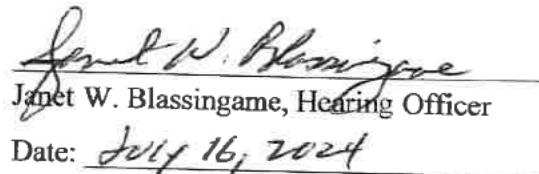 Janet W. Blassingame
Janet W. Blassingame, Hearing Officer
Date: July 16, 2024